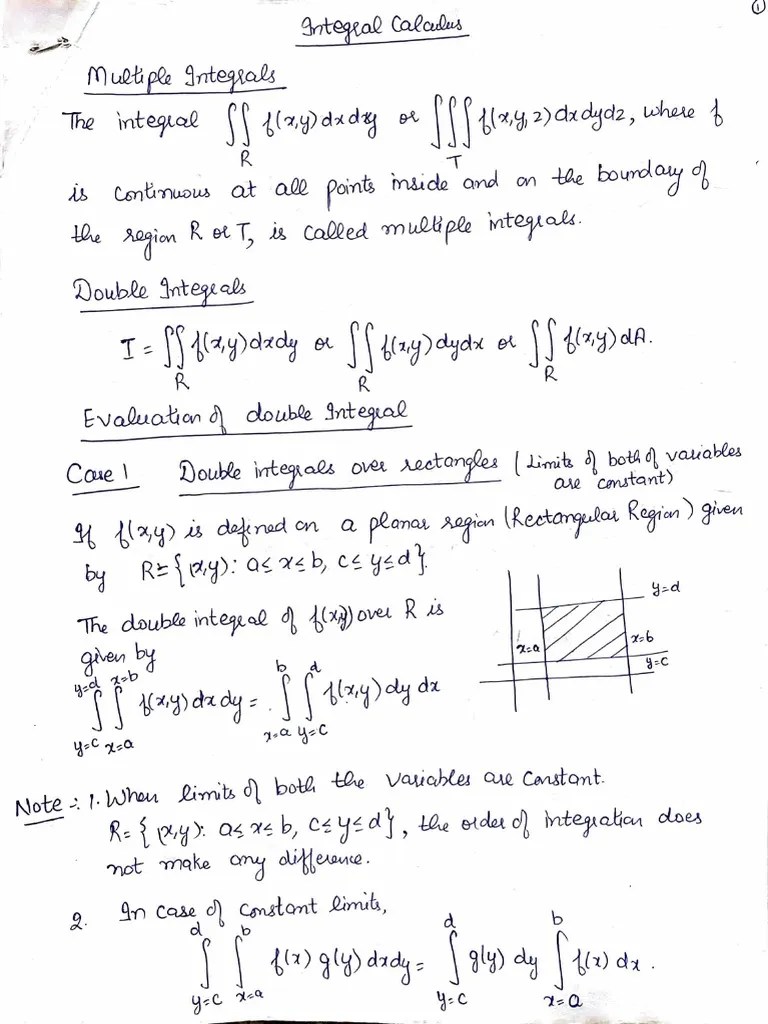 ①
Integral Calculus
Multiple Integrals
The integral ∬_R f(x,y) dx dy or ∭_T f(x,y,z) dx dy dz, where f
is continuous at all points inside and on the boundary of
the region R or T, is called multiple integrals.
Double Integrals
I = ∬_R f(x,y) dx dy or ∬_R f(x,y) dy dx or ∬_R f(x,y) dA.
Evaluation of double Integral
Case 1 Double integrals over rectangles (Limits of both of variables
are constant)
If f(x,y) is defined on a planar region (Rectangular Region) given
by R = {(x,y): a≤x≤b, c≤y≤d}.
The double integral of f(x,y) over R is
given by
∫_{y=c}^{y=d} ∫_{x=a}^{x=b} f(x,y) dx dy = ∫_{x=a}^{b} ∫_{y=c}^{d} f(x,y) dy dx
y=d
x=a
x=b
y=c
Note :- 1. When limits of both the variables are constant.
R = {(x,y): a≤x≤b, c≤y≤d}, the order of integration does
not make any difference.
2. In case of constant limits,
∫_{y=c}^{d} ∫_{x=a}^{b} f(x) g(y) dx dy = ∫_{y=c}^{d} g(y) dy ∫_{x=a}^{b} f(x) dx.